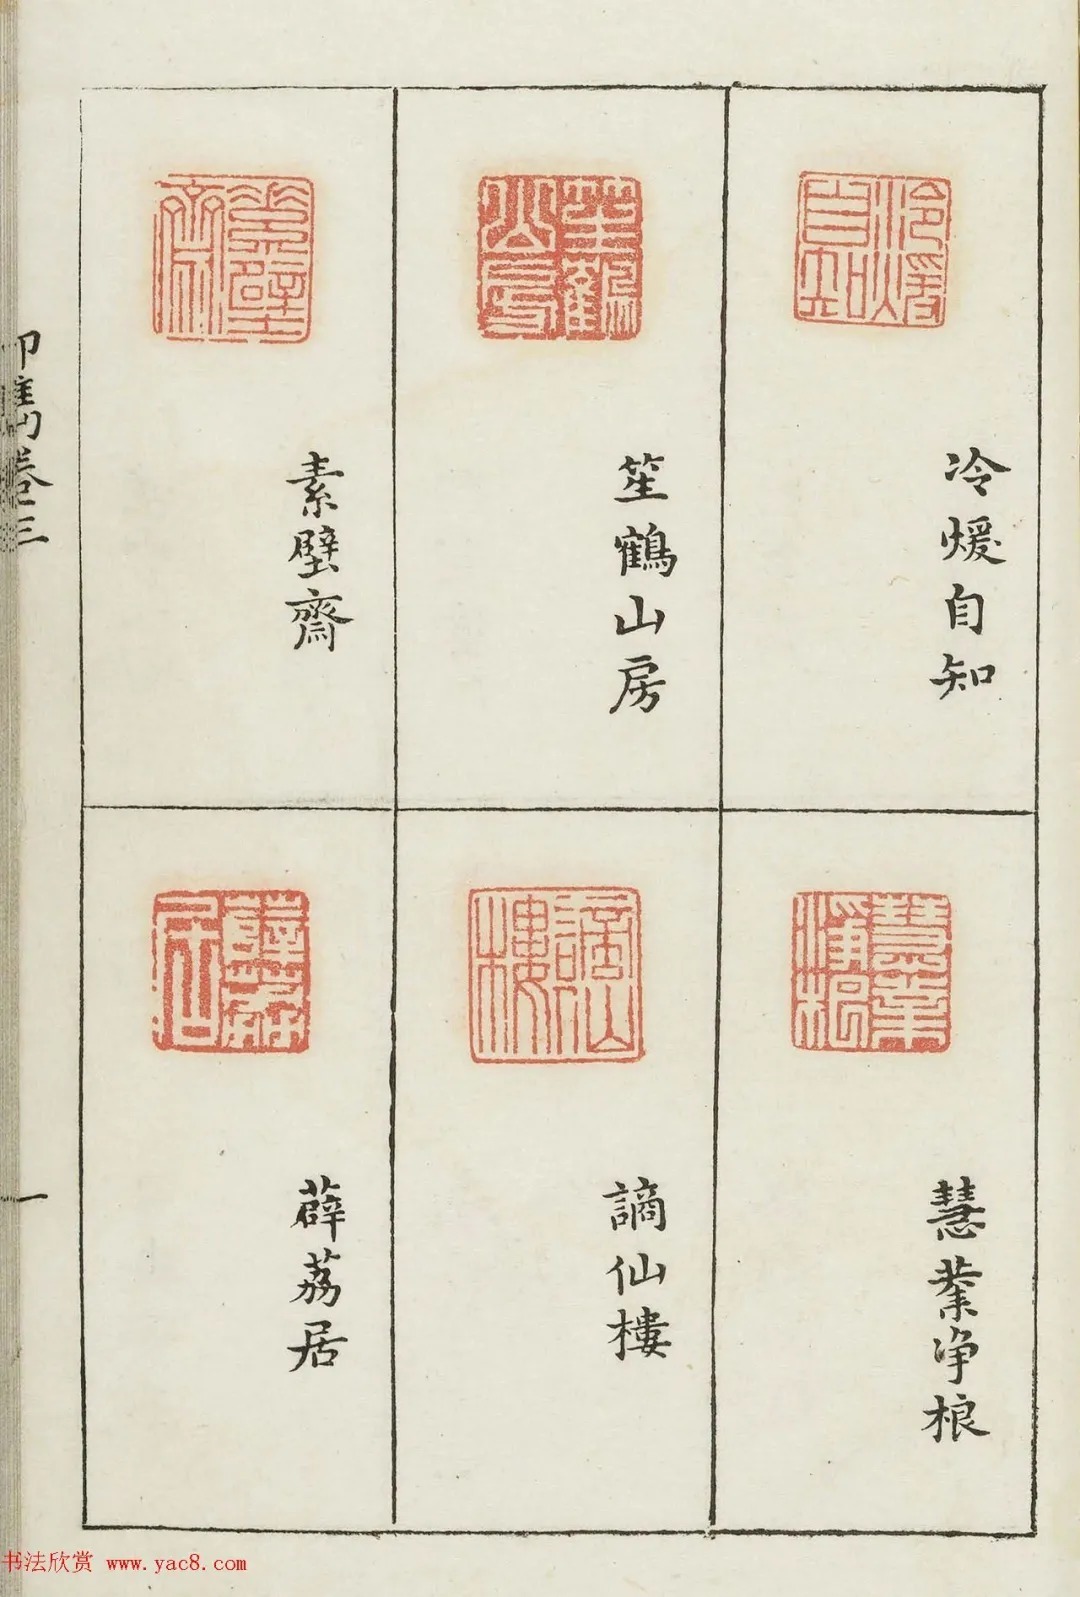 冷煖自知
笙鶴山房
素壁齋
慧業净根
謫仙樓
薜荔居
印雋卷三
一
书法欣赏 www.yac8.com